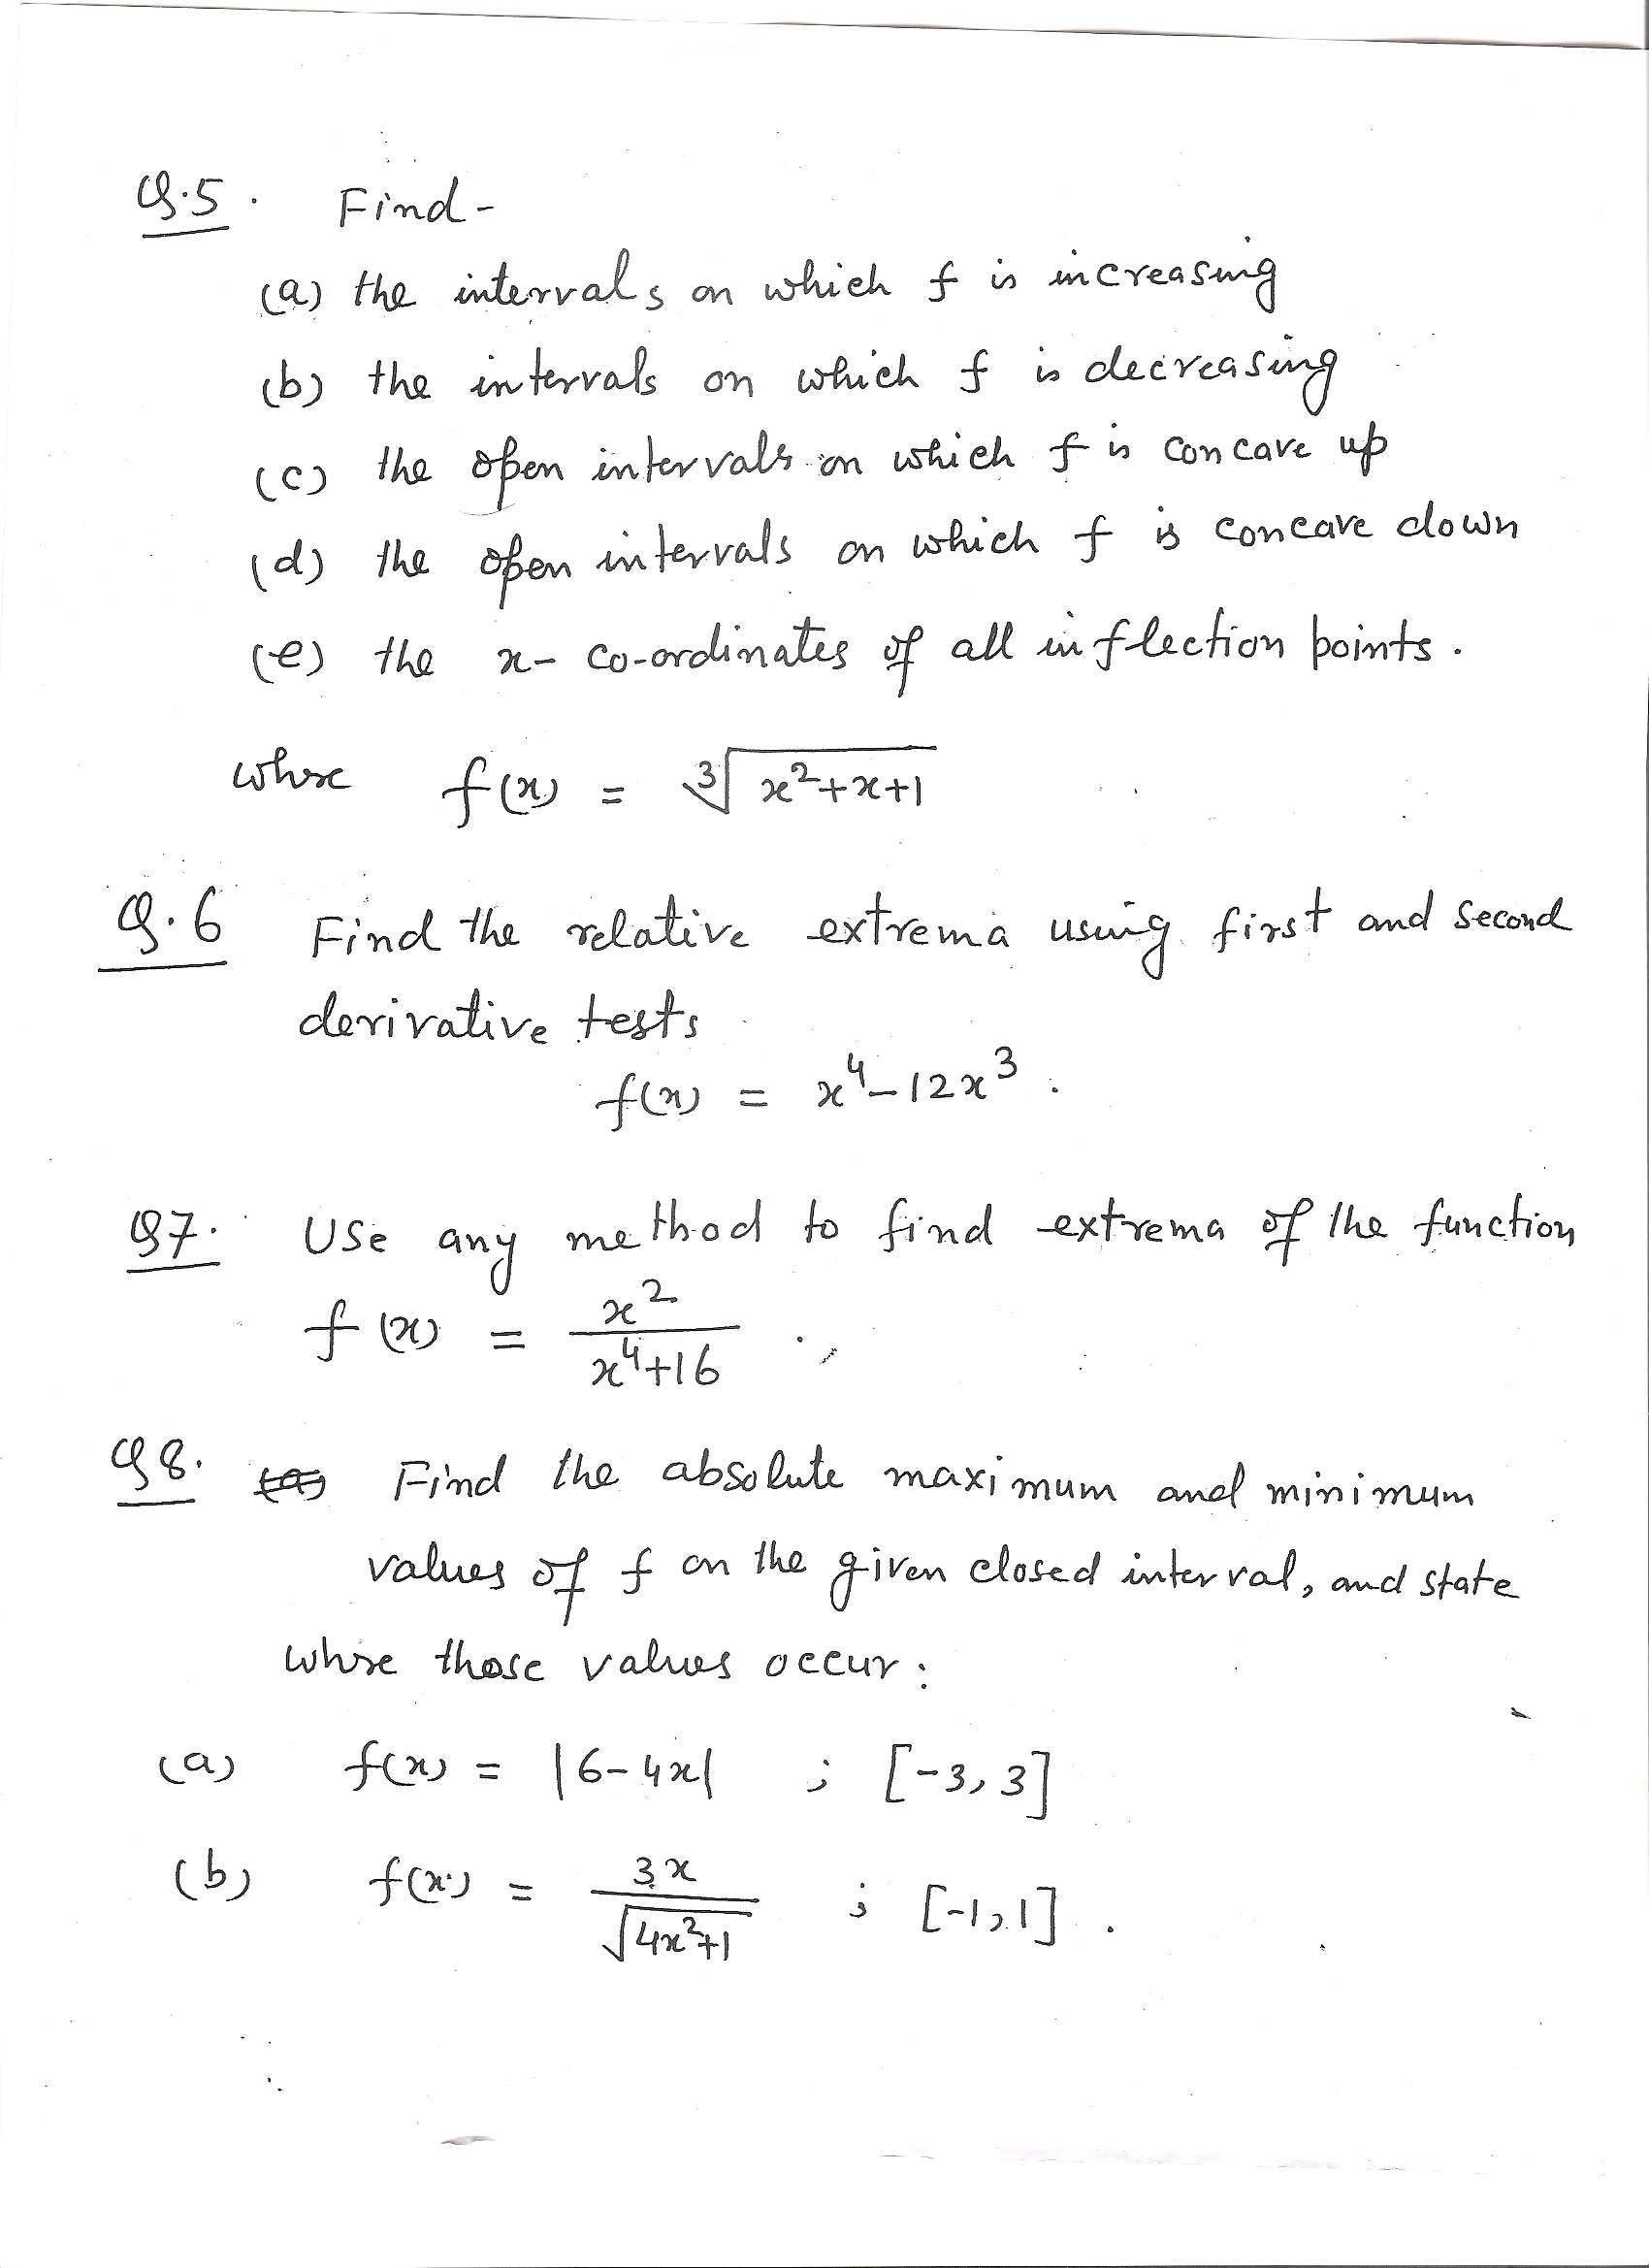 Q.5. Find -
(a) the intervals on which f is increasing
(b) the intervals on which f is decreasing
(c) the open intervals on which f is concave up
(d) the open intervals on which f is concave down
(e) the x- co-ordinates of all inflection points.
where f(x) = ∛(x²+x+1)
Q.6 Find the relative extrema using first and second
derivative tests
f(x) = x⁴-12x³.
Q7. Use any method to find extrema of the function
f(x) = x²/(x⁴+16).
Q8. (a) Find the absolute maximum and minimum
values of f on the given closed interval, and state
where those values occur:
(a) f(x) = |6-4x| ; [-3, 3]
(b) f(x) = 3x/√(4x²+1) ; [-1,1].